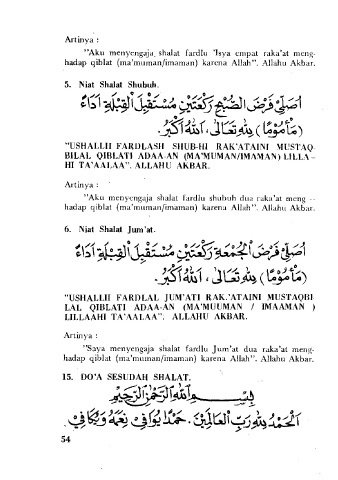 Artinya :
"Aku menyengaja shalat fardlu 'Isya empat raka'at meng-
hadap qiblat (ma'muman/imaman) karena Allah". Allahu Akbar.
5. Niat Shalat Shubuh.
أُصَلِّى فَرْضَ الصُّبْحِ رَكْعَتَيْنِ مُسْتَقْبِلَ الْقِبْلَةِ أَدَاءً
(مَأْمُوْمًا) لِلّٰهِ تَعَالَى، اَللهُ أَكْبَرُ.
"USHALLII FARDLASH SHUB-HI RAK'ATAINI MUSTAQ-
BILAL QIBLATI ADAA-AN (MA'MUMAN/IMAMAN) LILLA -
HI TA'AALAA". ALLAHU AKBAR.
Artinya :
"Aku menyengaja shalat fardlu shubuh dua raka'at meng -
hadap qiblat (ma'muman/imaman) karena Allah". Allahu Akbar.
6. Niat Shalat Jum'at.
أُصَلِّى فَرْضَ الْجُمْعَةِ رَكْعَتَيْنِ مُسْتَقْبِلَ الْقِبْلَةِ أَدَاءً
(مَأْمُوْمًا) لِلّٰهِ تَعَالَى، اَللهُ أَكْبَرُ.
"USHALLII FARDLAL JUM'ATI RAK.'ATAINI MUSTAQBI
LAL QIBLATI ADAA-AN (MA'MUUMAN / IMAAMAN )
LILLAAHI TA'AALAA". ALLAHU AKBAR.
Artinya :
"Saya menyengaja shalat fardlu Jum'at dua raka'at meng-
hadap qiblat (ma'muman/imaman) karena Allah". Allahu Akbar.
15. DO'A SESUDAH SHALAT.
بِسْمِ اللهِ الرَّحْمٰنِ الرَّحِيْمِ
اَلْحَمْدُ لِلّٰهِ رَبِّ الْعَالَمِيْنَ. حَمْدًا يُوَافِيْ نِعَمَهُ وَيُكَافِئُ
54